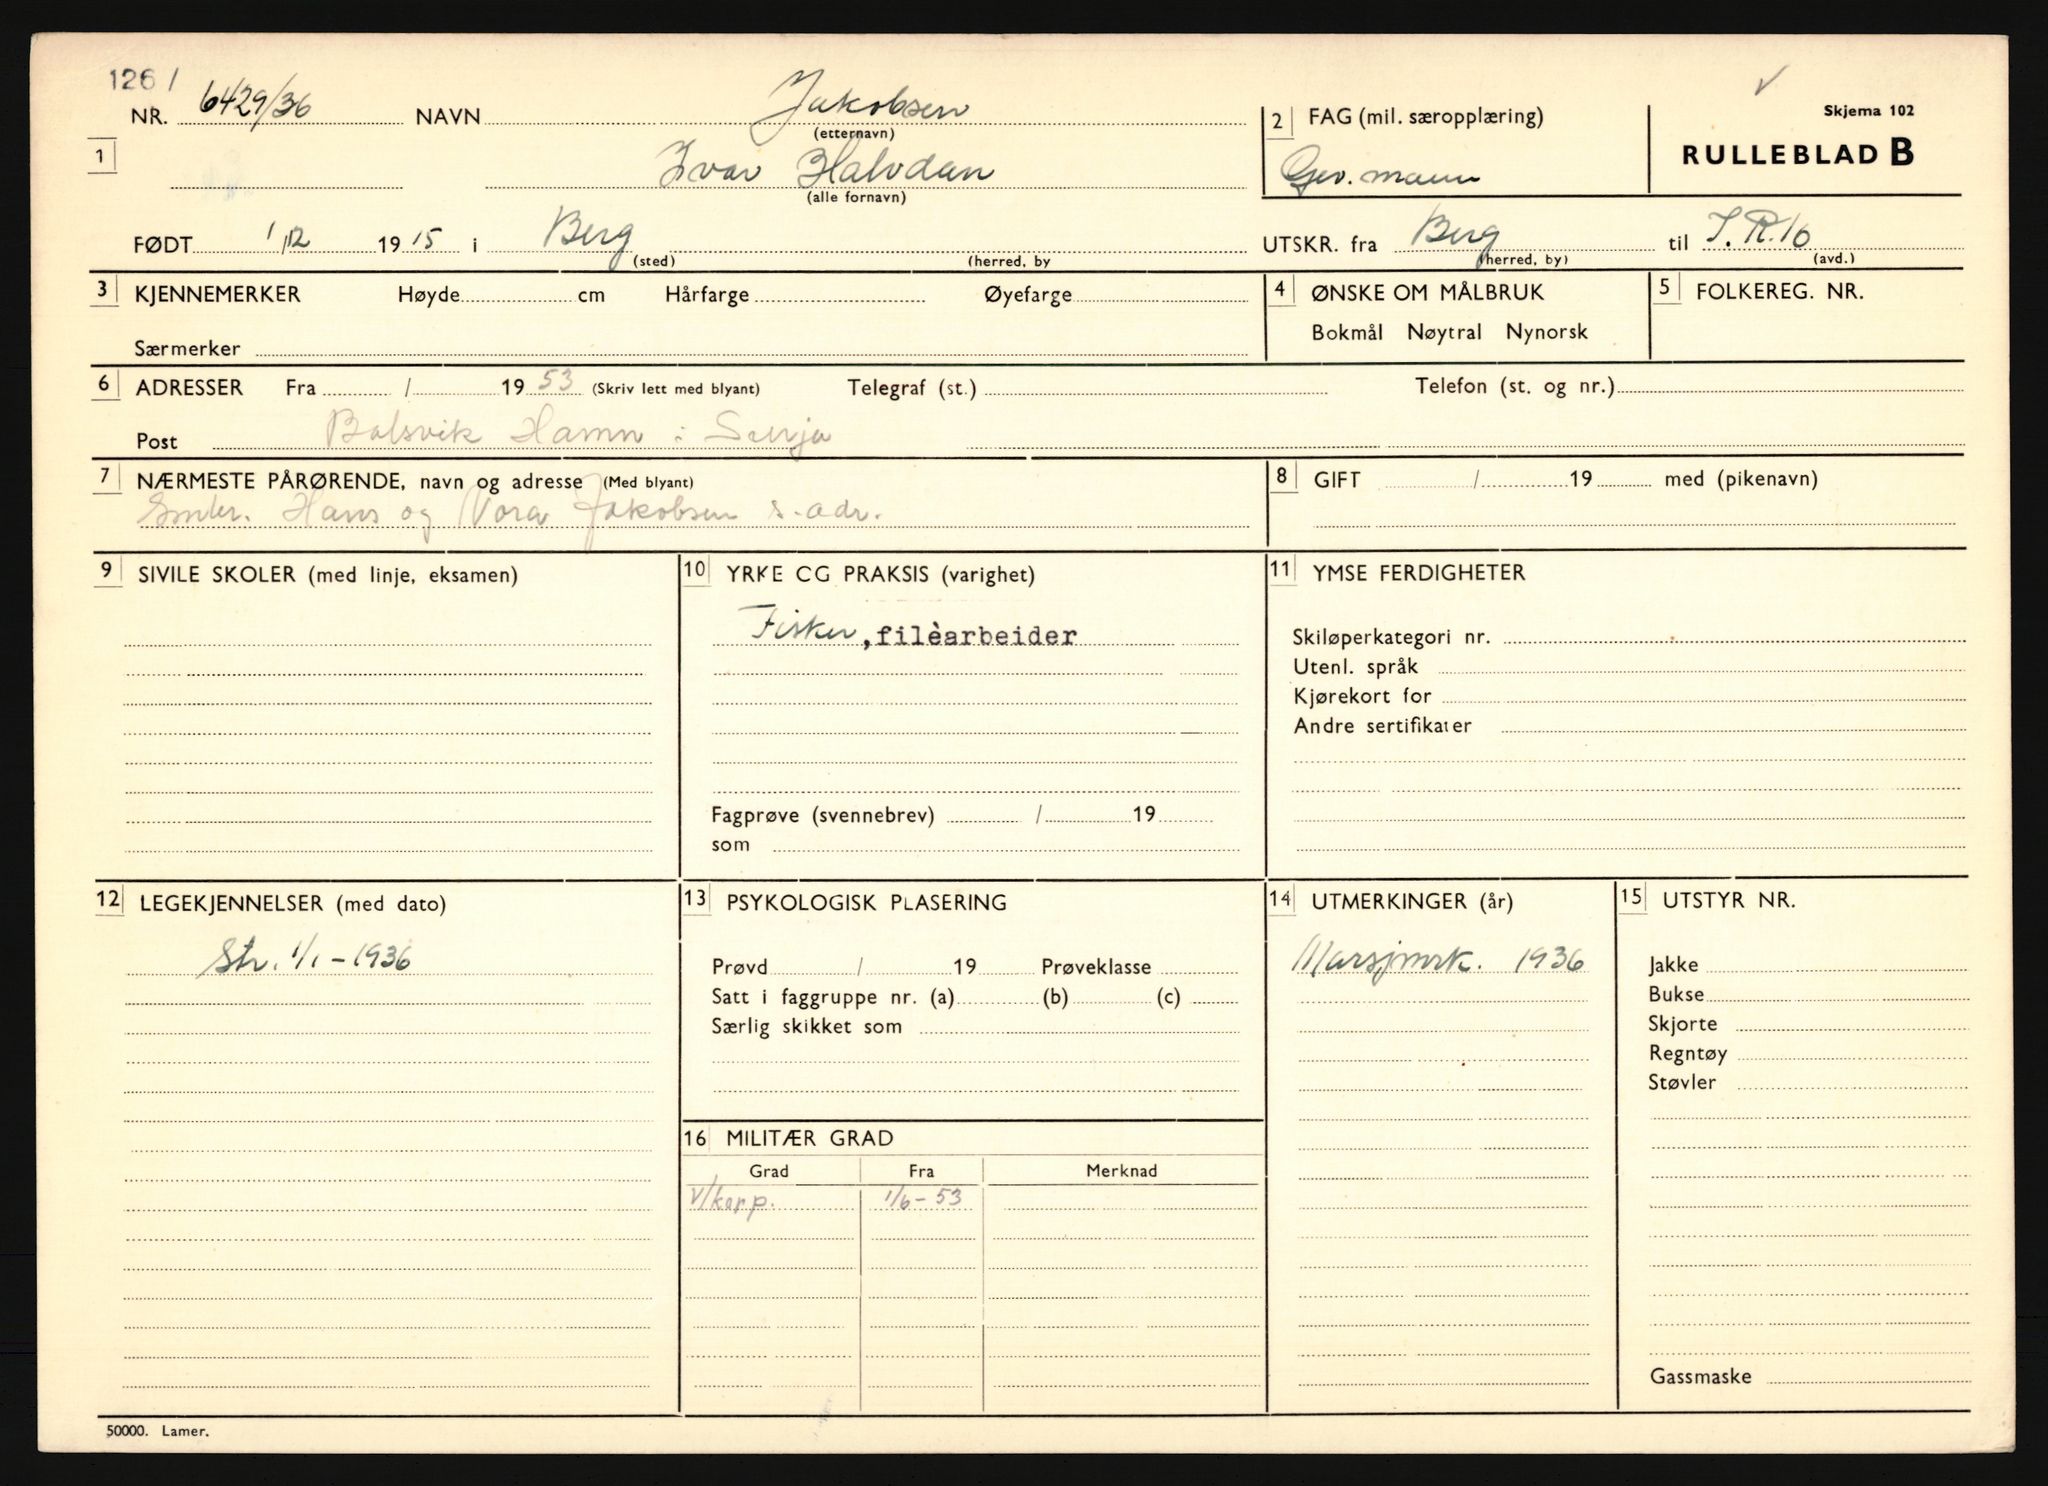 1261
NR. 6429/36 NAVN Jakobsen
(etternavn)
2 FAG (mil. særopplæring)
Skjema 102
RULLEBLAD B
1
Ivar Halvdan
(alle fornavn)
Gev. mann
FØDT 1/12 1915 i Berg
(sted) (herred, by
UTSKR. fra Berg til I.R.16
(herred, by) (avd.)
3 KJENNEMERKER Høyde cm Hårfarge Øyefarge
Særmerker
4 ØNSKE OM MÅLBRUK
Bokmål Nøytral Nynorsk
5 FOLKEREG. NR.
6 ADRESSER Fra / 1953 (Skriv lett med blyant) Telegraf (st.) Telefon (st. og nr.)
Post Balsvik Hamn i Senja
7 NÆRMESTE PÅRØRENDE, navn og adresse (Med blyant)
Hans og Nora Jakobsen s. adr.
8 GIFT / 19 med (pikenavn)
9 SIVILE SKOLER (med linje, eksamen)
10 YRKE CG PRAKSIS (varighet)
Fisker, filèarbeider
Fagprøve (svennebrev) / 19
som
11 YMSE FERDIGHETER
Skiløperkategori nr.
Utenl. språk
Kjørekort for
Andre sertifikater
12 LEGEKJENNELSER (med dato)
Str. 1/1 - 1936
13 PSYKOLOGISK PLASERING
Prøvd / 19 Prøveklasse
Satt i faggruppe nr. (a) (b) (c)
Særlig skikket som
14 UTMERKINGER (år)
Marsjmrk. 1936
15 UTSTYR NR.
Jakke
Bukse
Skjorte
Regntøy
Støvler
Gassmaske
16 MILITÆR GRAD
Grad Fra Merknad
V/korp. 1/6 - 53
50000. Lamer.